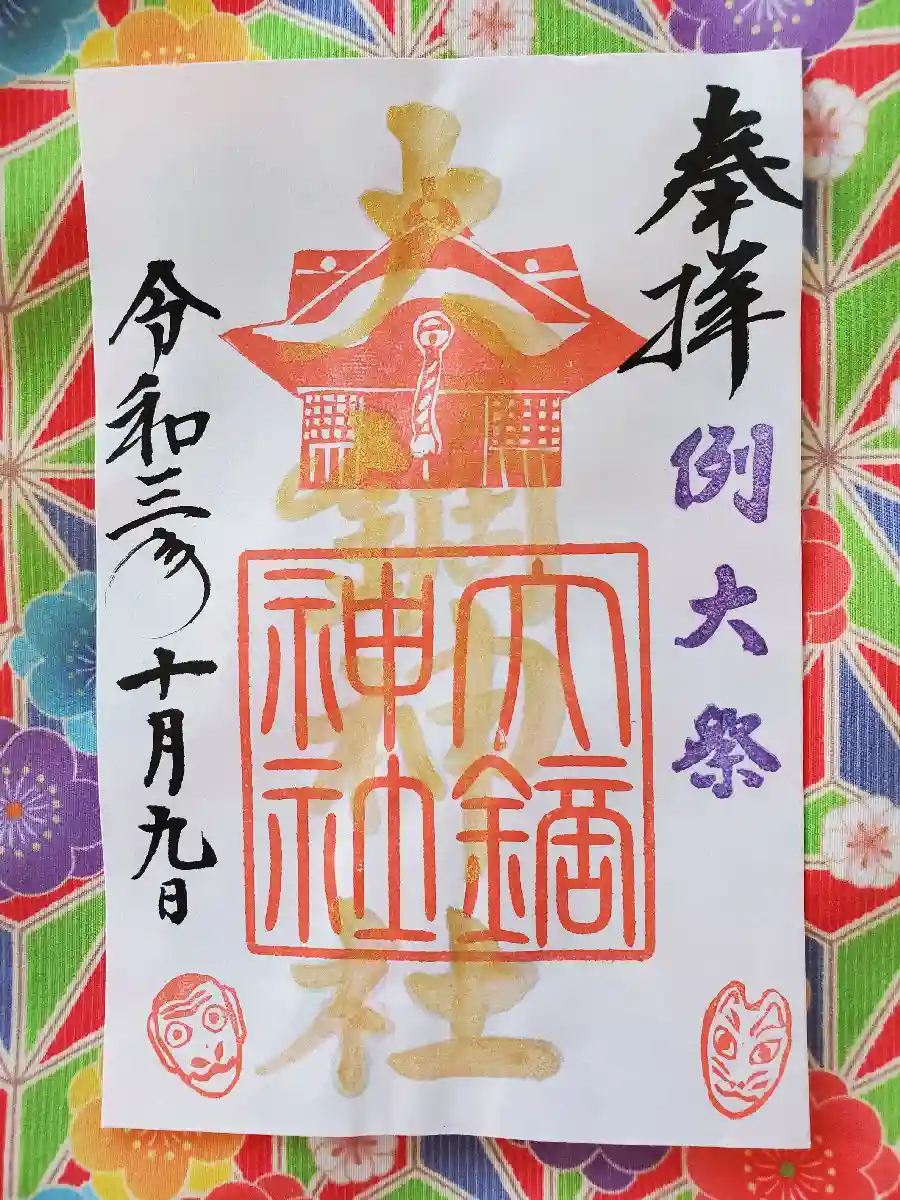 奉拝
例大祭
大鏑神社
大鏑神社
令和三年
十月九日